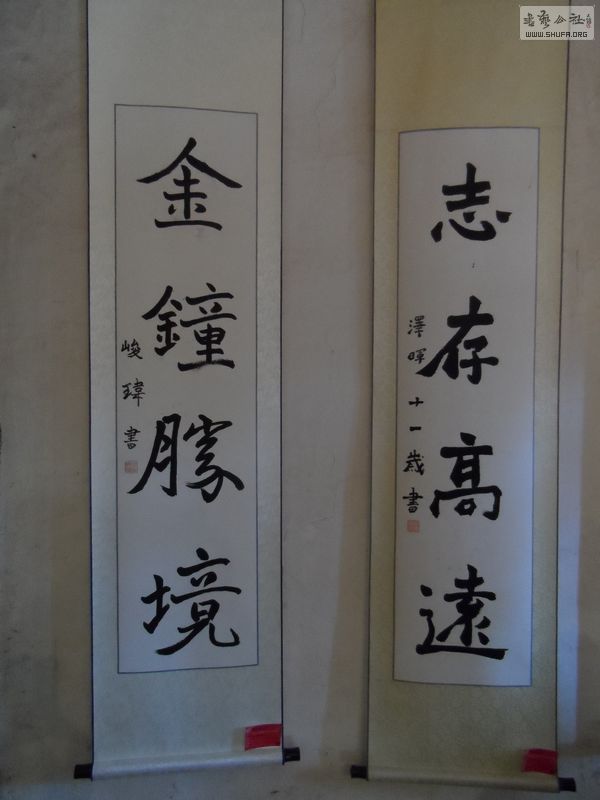 志存高遠
澤暉十一歲書
金鐘勝境
峻瑋書
書藝公社
WWW.SHUFA.ORG